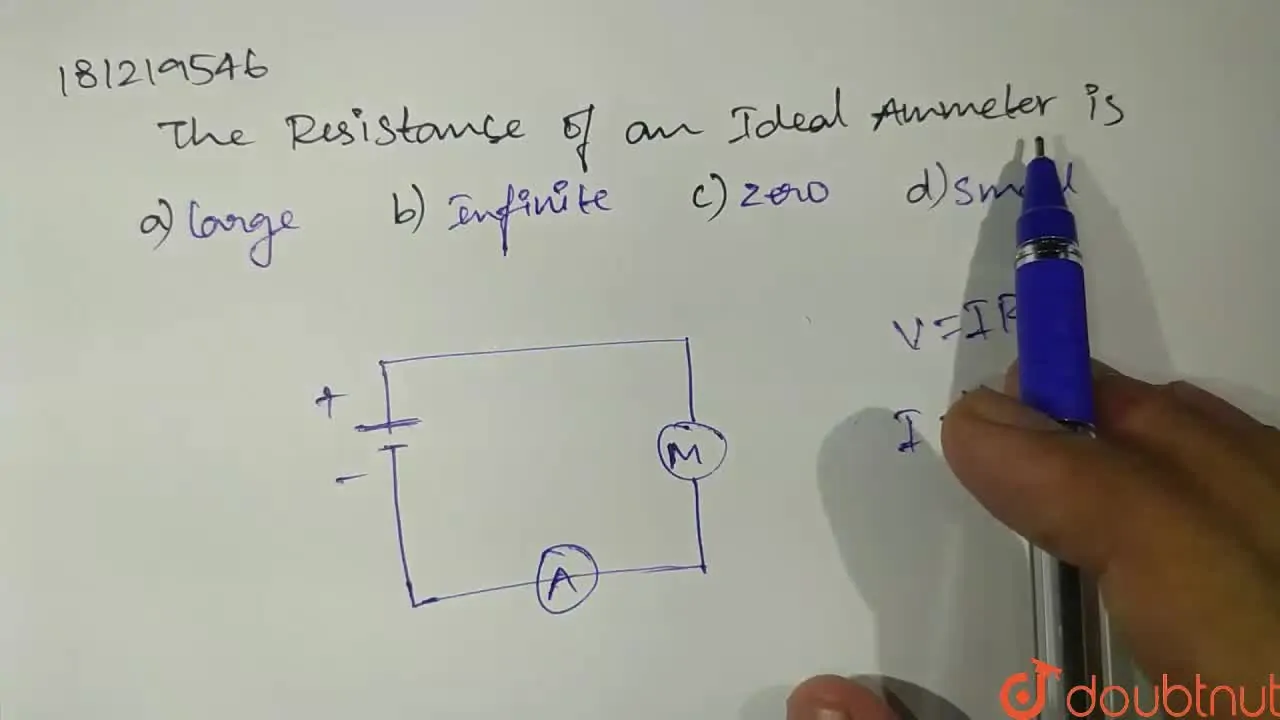 181219546
The Resistance of an Ideal Ammeter is
a) large b) Infinite c) zero d)
+
-
M
A
V=I
I
doubtnut